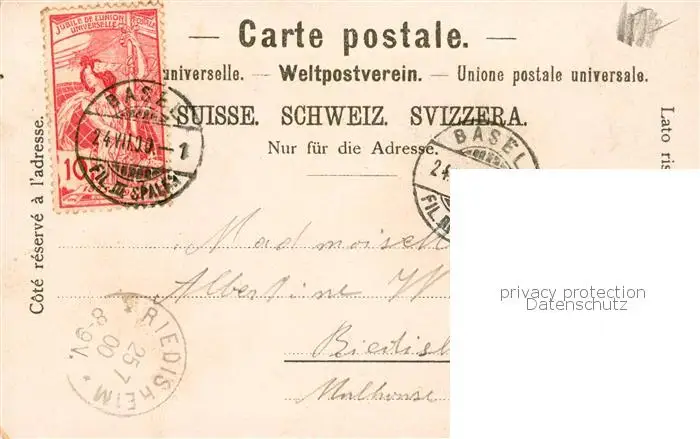 JUBILÉ DE L'UNION POSTALE
UNIVERSELLE
10
BASEL
24.VII.00.–1
FIL. SPALEN
— Carte postale. —
universelle. — Weltpostverein. — Unione postale universale.
SUISSE. SCHWEIZ. SVIZZERA.
Nur für die Adresse.
BASEL
24
FIL.
Côté réservé à l'adresse.
Lato ris
Mademoisell
Albertine W
Riedish
Mulhouse
RIEDISHEIM
25 7
00
8-9V.
privacy protection
Datenschutz